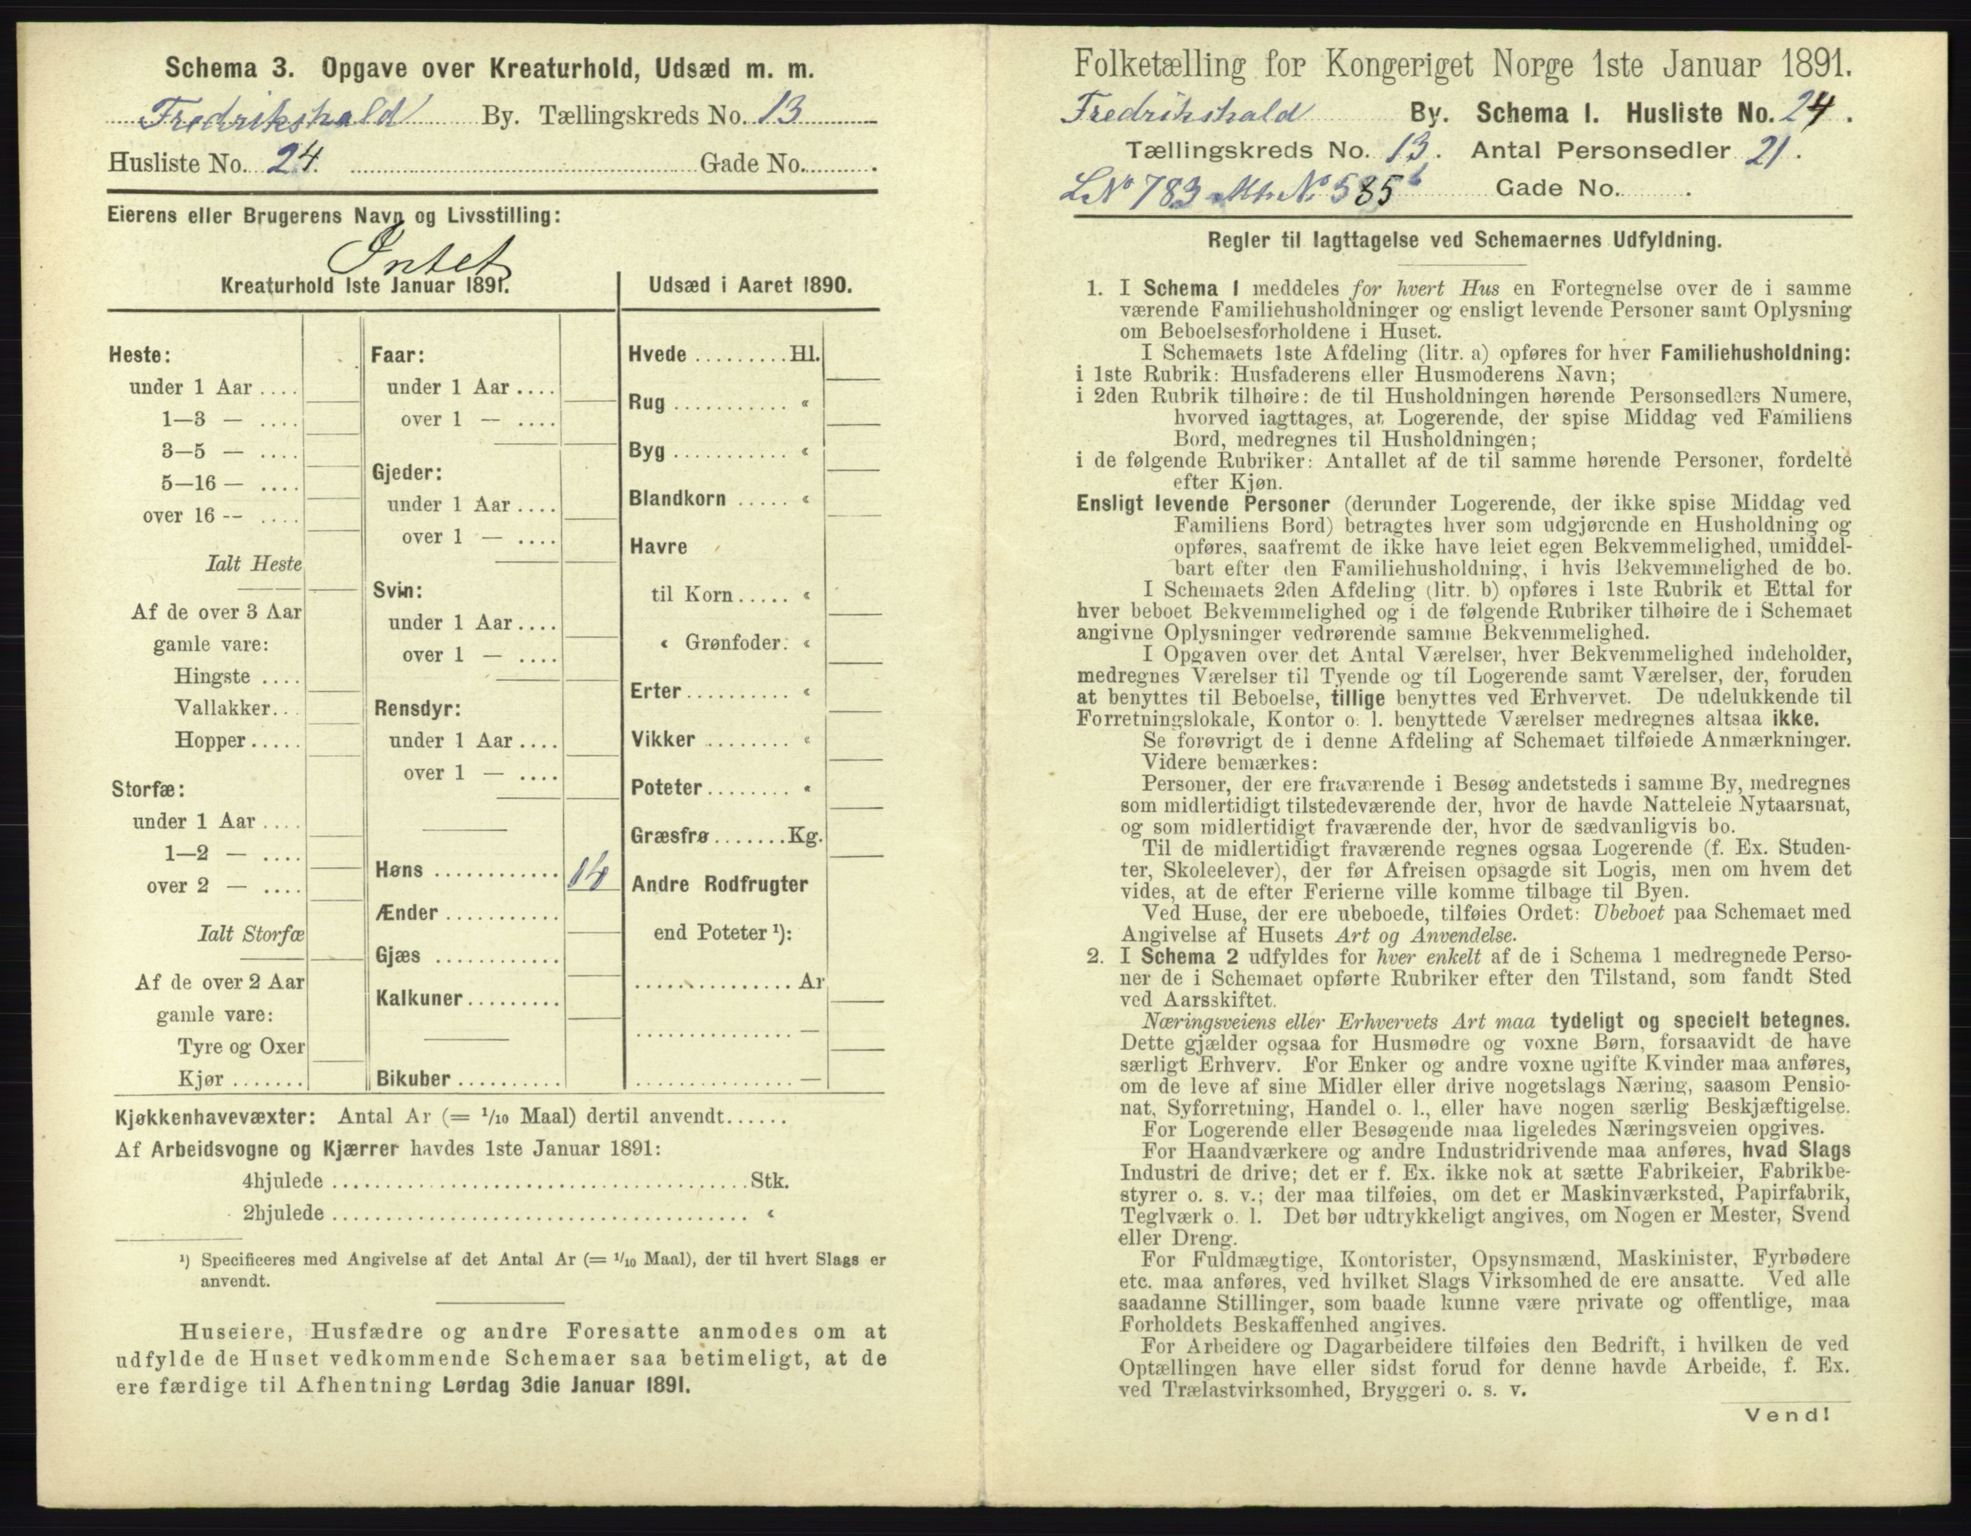 Schema 3. Opgave over Kreaturhold, Udsæd m. m.
Fredrikshald By. Tællingskreds No. 13
Husliste No. 24. Gade No. .
Eierens eller Brugerens Navn og Livsstilling:
Intet
Kreaturhold 1ste Januar 1891.
Heste:
under 1 Aar ....
1—3 — ....
3—5 — ....
5—16 — ....
over 16 -- ....
Ialt Heste
Af de over 3 Aar
gamle vare:
Hingste ....
Vallakker...
Hopper.....
Storfæ:
under 1 Aar ....
1—2 — ....
over 2 — ....
Ialt Storfæ
Af de over 2 Aar
gamle vare:
Tyre og Oxer
Kjør .......
Faar:
under 1 Aar ....
over 1 — ....
Gjeder:
under 1 Aar ....
over 1 — ....
Svin:
under 1 Aar ....
over 1 — ....
Rensdyr:
under 1 Aar ....
over 1 — ....
Høns ............
Ænder ...........
Gjæs ............
Kalkuner.........
Bikuber ..........
Udsæd i Aaret 1890.
Hvede .........Hl.
Rug ........... «
Byg ........... «
Blandkorn ..... «
Havre
til Korn..... «
« Grønfoder. «
Erter.......... «
Vikker ........ «
Poteter........ «
Græsfrø .......Kg.
Andre Rodfrugter
end Poteter ¹):
............... Ar
............... —
............... —
Kjøkkenhavevæxter: Antal Ar (= 1/10 Maal) dertil anvendt......
Af Arbeidsvogne og Kjærrer havdes 1ste Januar 1891:
4hjulede ........................................Stk.
2hjulede ........................................ «
¹) Specificeres med Angivelse af det Antal Ar (= 1/10 Maal), der til hvert Slags er
anvendt.
Huseiere, Husfædre og andre Foresatte anmodes om at
udfylde de Huset vedkommende Schemaer saa betimeligt, at de
ere færdige til Afhentning Lørdag 3die Januar 1891.
Folketælling for Kongeriget Norge 1ste Januar 1891.
Fredrikshald By. Schema I. Husliste No. 24.
Tællingskreds No. 13. Antal Personsedler 21.
LNo 783 Mtr. No 585 b Gade No. .
Regler til Iagttagelse ved Schemaernes Udfyldning.
1. I Schema I meddeles for hvert Hus en Fortegnelse over de i samme
værende Familiehusholdninger og ensligt levende Personer samt Oplysning
om Beboelsesforholdene i Huset.
I Schemaets 1ste Afdeling (litr. a) opføres for hver Familiehusholdning:
i 1ste Rubrik: Husfaderens eller Husmoderens Navn;
i 2den Rubrik tilhøire: de til Husholdningen hørende Personsedlers Numere,
hvorved iagttages, at Logerende, der spise Middag ved Familiens
Bord, medregnes til Husholdningen;
i de følgende Rubriker: Antallet af de til samme hørende Personer, fordelte
efter Kjøn.
Ensligt levende Personer (derunder Logerende, der ikke spise Middag ved
Familiens Bord) betragtes hver som udgjørende en Husholdning og
opføres, saafremt de ikke have leiet egen Bekvemmelighed, umiddel-
bart efter den Familiehusholdning, i hvis Bekvemmelighed de bo.
I Schemaets 2den Afdeling (litr. b) opføres i 1ste Rubrik et Ettal for
hver beboet Bekvemmelighed og i de følgende Rubriker tilhøire de i Schemaet
angivne Oplysninger vedrørende samme Bekvemmelighed.
I Opgaven over det Antal Værelser, hver Bekvemmelighed indeholder,
medregnes Værelser til Tyende og til Logerende samt Værelser, der, foruden
at benyttes til Beboelse, tillige benyttes ved Erhvervet. De udelukkende til
Forretningslokale, Kontor o. l. benyttede Værelser medregnes altsaa ikke.
Se forøvrigt de i denne Afdeling af Schemaet tilføiede Anmærkninger.
Videre bemærkes:
Personer, der ere fraværende i Besøg andetsteds i samme By, medregnes
som midlertidigt tilstedeværende der, hvor de havde Natteleie Nytaarsnat,
og som midlertidigt fraværende der, hvor de sædvanligvis bo.
Til de midlertidigt fraværende regnes ogsaa Logerende (f. Ex. Studen-
ter, Skoleelever), der før Afreisen opsagde sit Logis, men om hvem det
vides, at de efter Ferierne ville komme tilbage til Byen.
Ved Huse, der ere ubeboede, tilføies Ordet: Ubeboet paa Schemaet med
Angivelse af Husets Art og Anvendelse.
2. I Schema 2 udfyldes for hver enkelt af de i Schema 1 medregnede Perso-
ner de i Schemaet opførte Rubriker efter den Tilstand, som fandt Sted
ved Aarsskiftet.
Næringsveiens eller Erhvervets Art maa tydeligt og specielt betegnes.
Dette gjælder ogsaa for Husmødre og voxne Børn, forsaavidt de have
særligt Erhverv. For Enker og andre voxne ugifte Kvinder maa anføres,
om de leve af sine Midler eller drive nogetslags Næring, saasom Pensio-
nat, Syforretning, Handel o. l., eller have nogen særlig Beskjæftigelse.
For Logerende eller Besøgende maa ligeledes Næringsveien opgives.
For Haandværkere og andre Industridrivende maa anføres, hvad Slags
Industri de drive; det er f. Ex. ikke nok at sætte Fabrikeier, Fabrikbe-
styrer o. s. v.; der maa tilføies, om det er Maskinværksted, Papirfabrik,
Teglværk o. l. Det bør udtrykkeligt angives, om Nogen er Mester, Svend
eller Dreng.
For Fuldmægtige, Kontorister, Opsynsmænd, Maskinister, Fyrbødere
etc. maa anføres, ved hvilket Slags Virksomhed de ere ansatte. Ved alle
saadanne Stillinger, som baade kunne være private og offentlige, maa
Forholdets Beskaffenhed angives.
For Arbeidere og Dagarbeidere tilføies den Bedrift, i hvilken de ved
Optællingen have eller sidst forud for denne havde Arbeide, f. Ex.
ved Trælastvirksomhed, Bryggeri o. s. v.
Vend!